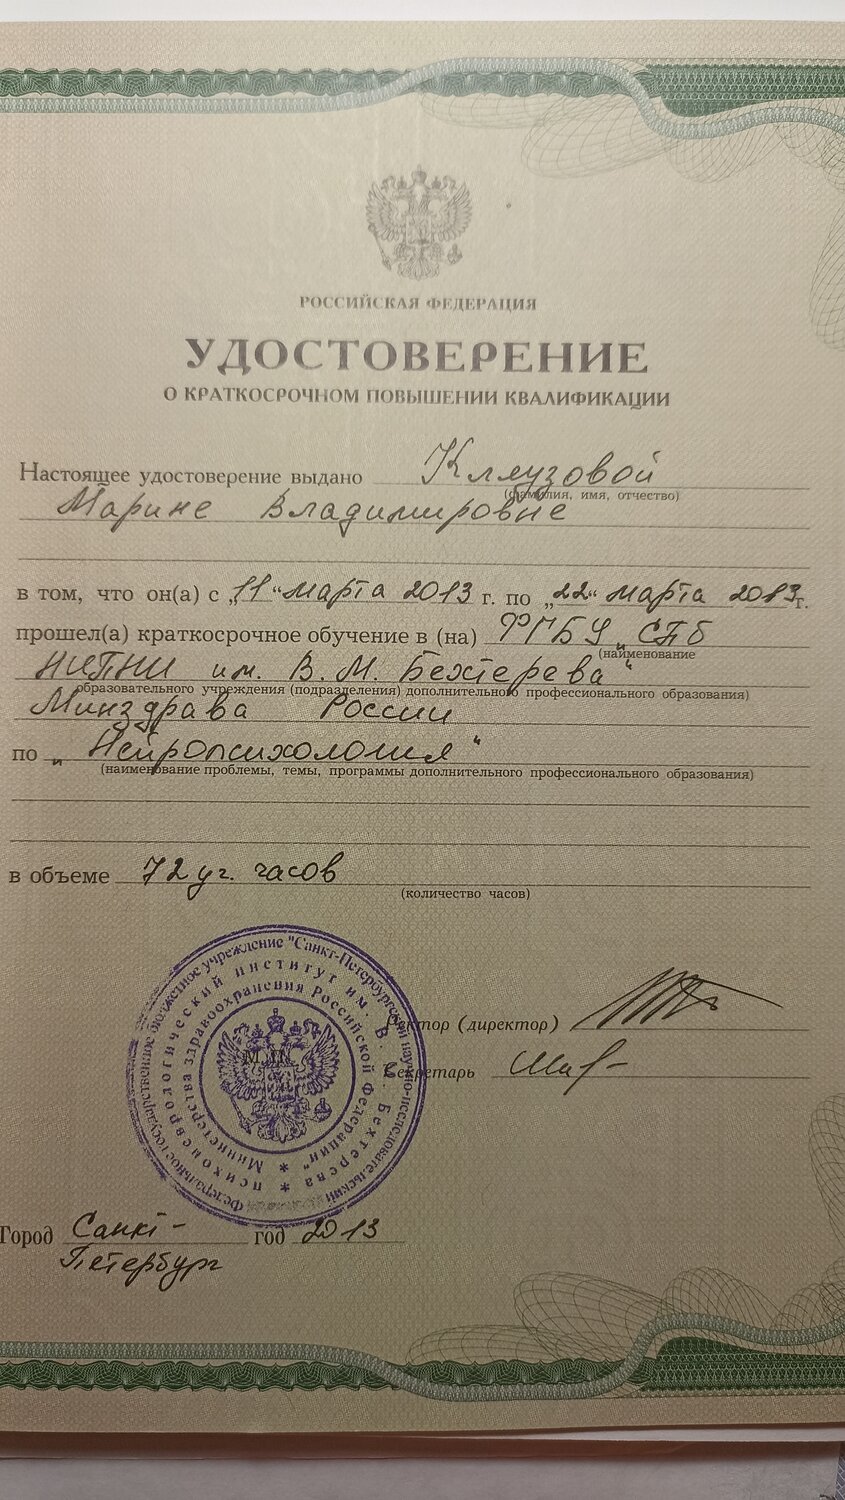 РОССИЙСКАЯ ФЕДЕРАЦИЯ
УДОСТОВЕРЕНИЕ
О КРАТКОСРОЧНОМ ПОВЫШЕНИИ КВАЛИФИКАЦИИ
Настоящее удостоверение выдано Кляузовой
(фамилия, имя, отчество)
Марине Владимировне
в том, что он(а) с „11“ марта 2013 г. по „22“ марта 2013 г.
прошел(а) краткосрочное обучение в (на) ФГБУ „СПб
(наименование
НИПНИ им. В. М. Бехтерева“
образовательного учреждения (подразделения) дополнительного профессионального образования)
Минздрава России
по „Нейропсихология“
(наименование проблемы, темы, программы дополнительного профессионального образования)
в объеме 72 уч. часов
(количество часов)
Федеральное государственное бюджетное учреждение "Санкт-Петербургский научно-исследовательский
психоневрологический институт им. В. М. Бехтерева"
Министерства здравоохранения Российской Федерации
М.П.
Ректор (директор)
Секретарь
Город Санкт- год 2013
Петербург